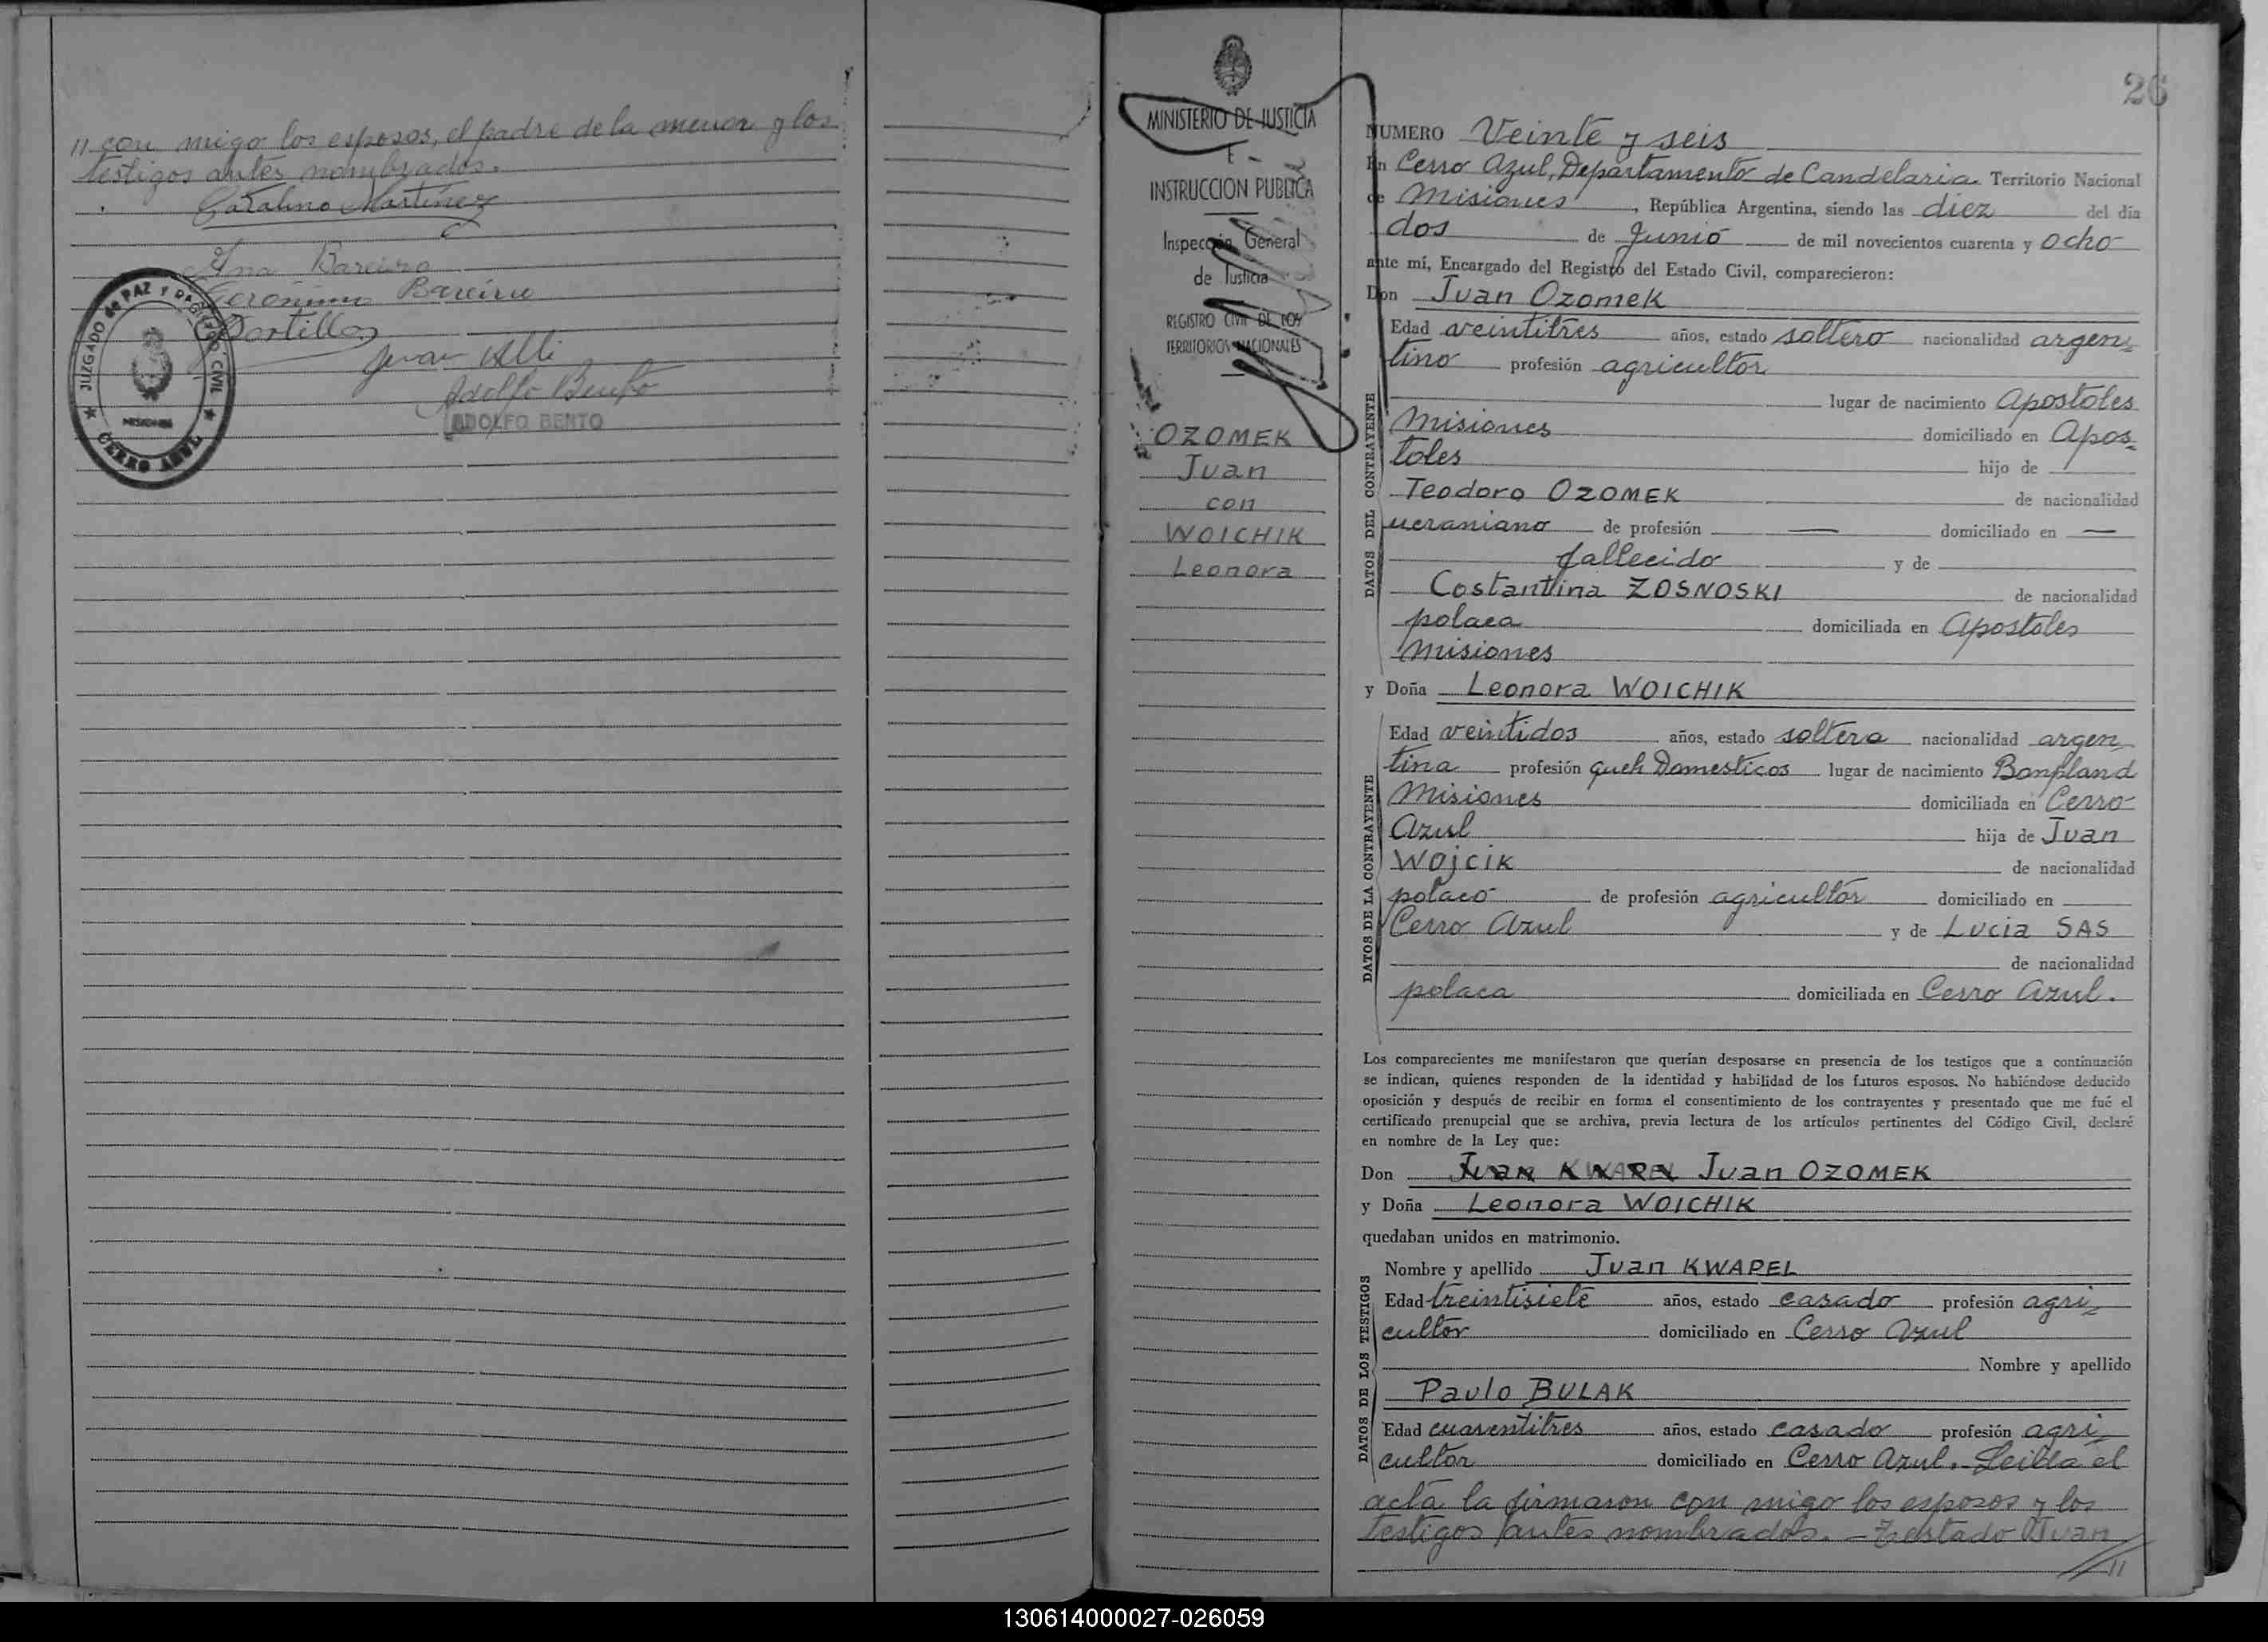 11 con migo los esposos, el padre de la menor y los
testigos antes nombrados.
Catalino Martinez
Ana Bareiro
Gerónimo Bareiro
Portillo
Juan Alli
Adolfo Bento
ADOLFO BENTO
JUZGADO de PAZ Y REGISTRO CIVIL
MISIONES
CERRO AZUL
MINISTERIO DE JUSTICIA
E
INSTRUCCION PUBLICA
Inspección General
de Justicia
REGISTRO CIVIL DE LOS
TERRITORIOS NACIONALES
OZOMEK
Juan
con
WOICHIK
Leonora
26
NUMERO Veinte y seis
En Cerro Azul, Departamento de Candelaria Territorio Nacional
de Misiones, República Argentina, siendo las diez del día
dos de Junio de mil novecientos cuarenta y ocho
ante mí, Encargado del Registro del Estado Civil, comparecieron:
Don Juan Ozomek
DATOS DEL CONTRAYENTE
Edad veintitres años, estado soltero nacionalidad argen=
tino profesión agricultor
lugar de nacimiento Apostoles
Misiones domiciliado en Apos=
toles hijo de
Teodoro OZOMEK de nacionalidad
ucraniano de profesión — domiciliado en —
fallecido y de
Costantina ZOSNOSKI de nacionalidad
polaca domiciliada en Apostoles
Misiones
y Doña Leonora WOICHIK
DATOS DE LA CONTRAYENTE
Edad veintidos años, estado soltera nacionalidad argen=
tina profesión queh Domesticos lugar de nacimiento Bonpland
Misiones domiciliada en Cerro
Azul hija de Juan
WOJCIK de nacionalidad
polaco de profesión agricultor domiciliado en
Cerro Azul y de Lucia SAS
de nacionalidad
polaca domiciliada en Cerro Azul.
Los comparecientes me manifestaron que querían desposarse en presencia de los testigos que a continuación
se indican, quienes responden de la identidad y habilidad de los futuros esposos. No habiéndose deducido
oposición y después de recibir en forma el consentimiento de los contrayentes y presentado que me fué el
certificado prenupcial que se archiva, previa lectura de los artículos pertinentes del Código Civil, declaré
en nombre de la Ley que:
Don Juan KWAPEL Juan OZOMEK
y Doña Leonora WOICHIK
quedaban unidos en matrimonio.
DATOS DE LOS TESTIGOS
Nombre y apellido Juan KWAPEL
Edad treintisiete años, estado casado profesión agri=
cultor domiciliado en Cerro Azul
Nombre y apellido
Paulo BULAK
Edad cuarentitres años, estado casado profesión agri=
cultor domiciliado en Cerro Azul. Leida el
acta la firmaron con migo los esposos y los
testigos antes nombrados. — Testado Juan
// 11
130614000027-026059